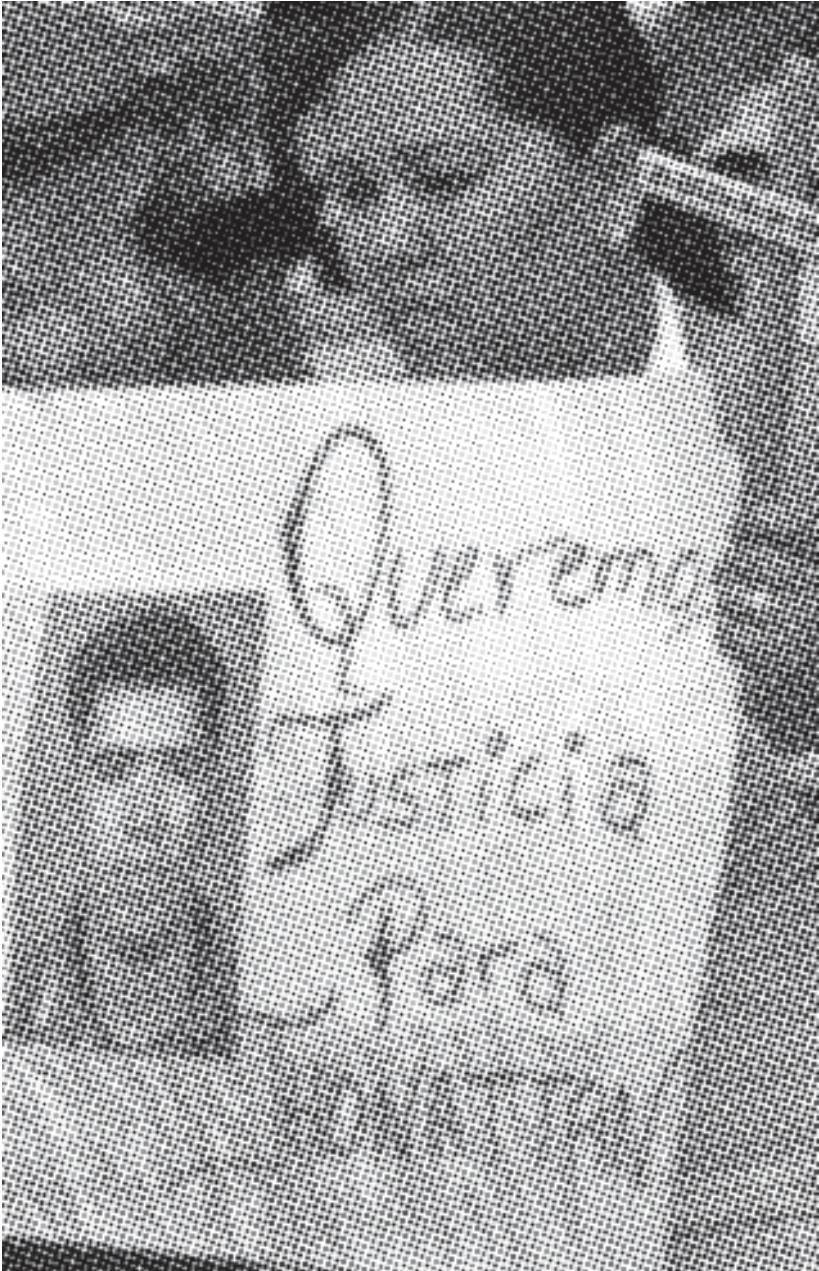 Queremos
Justicia
Para